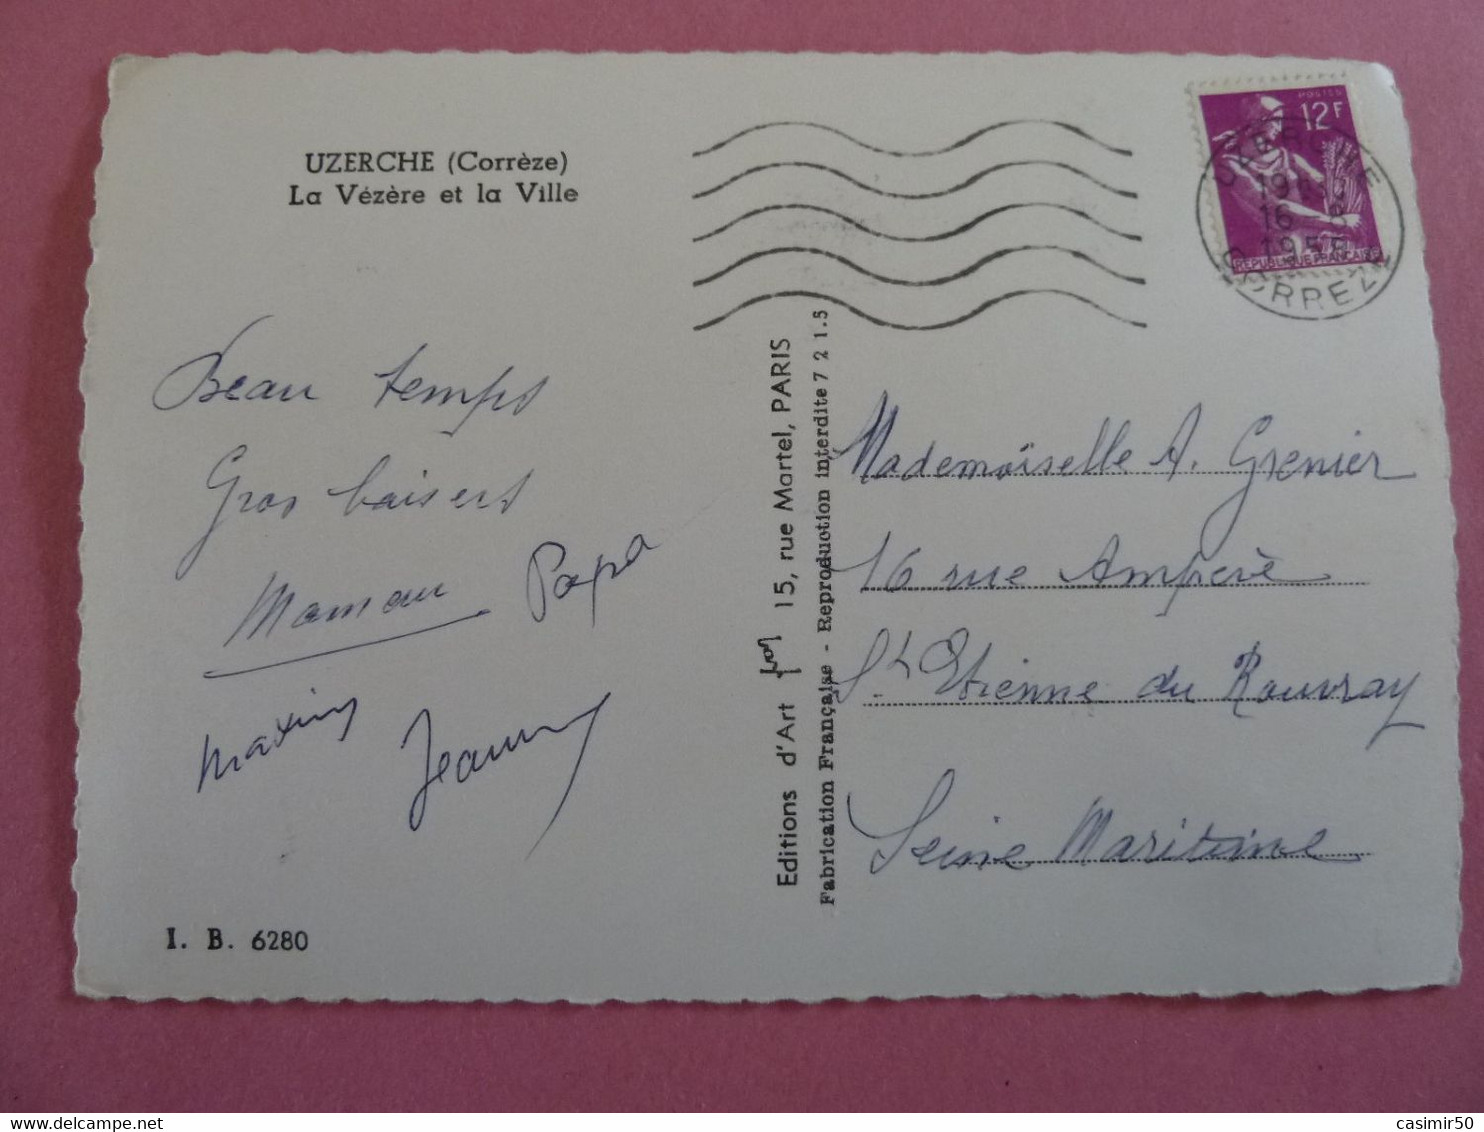 UZERCHE (Corrèze)
La Vézère et la Ville
Beau temps
Gros baisers
Maman Papa
Jeanny
I. B. 6280
Editions d'Art 15, rue Martel, PARIS
Fabrication Française - Reproduction interdite 7 2 1.5
POSTES
12F
REPUBLIQUE FRANCAISE
UZERCHE
16
CORREZE
Mademoiselle A. Grenier
16 rue Ampère
St Etienne du Rouvray
Seine Maritime
casimir50